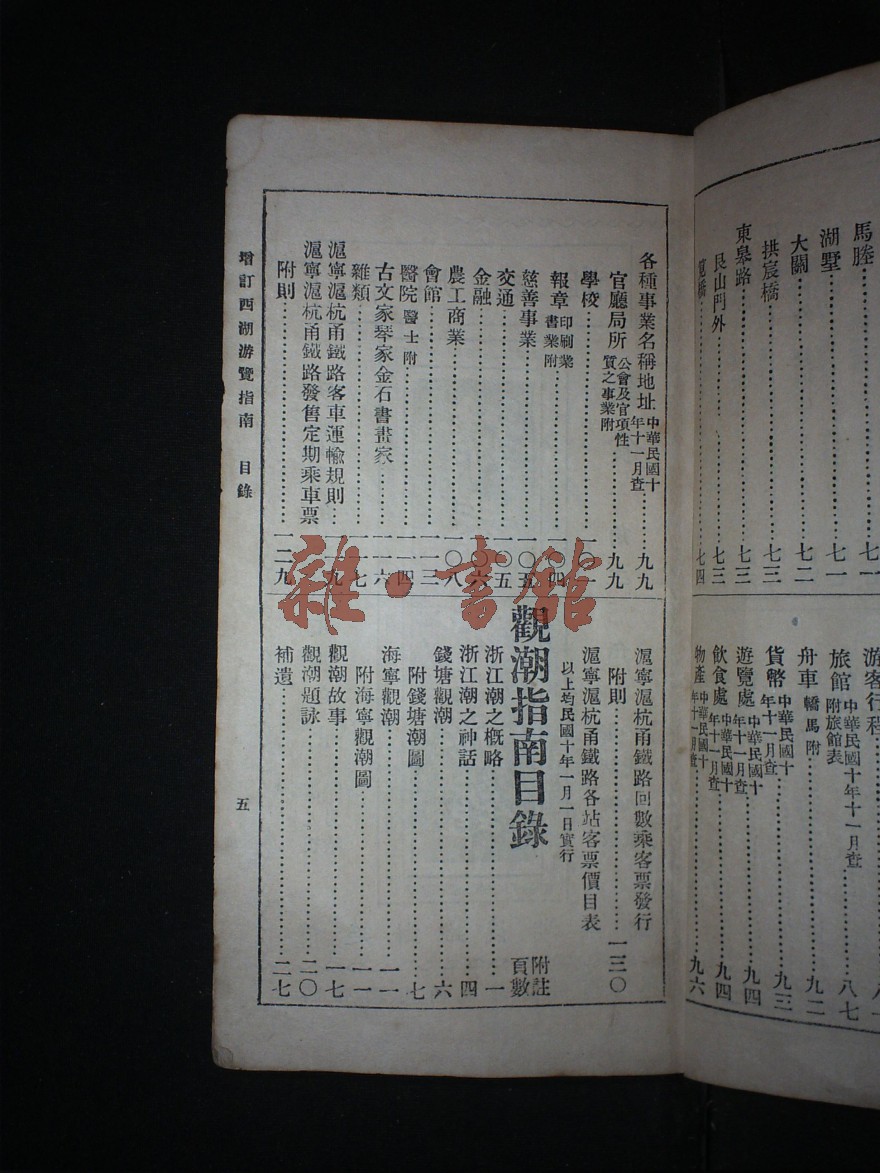 馬塍……七一
湖墅……七一
大關……七二
拱宸橋……七三
東皋路……七三
艮山門外……七三
七四
游客行程
旅館 中華民國十年十一月查 附旅館表……八七
舟車 轎馬附……九二
貨幣 中華民國十年十一月查……九三
遊覽處 中華民國十年十一月查……九四
飲食處 中華民國十年十一月查……九四
物產 中華民國十年十一月查……九六
各種事業名稱地址 中華民國十年十一月查……九九
官廳局所 公會及官項性質之事業附……九九
學校
報章 印刷業書業附
慈善事業
交通
金融
農工商業……一〇八
會館
醫院 醫士附
古文家琴家金石書畫家
雜類
滬寧滬杭甬鐵路客車運輸規則
滬寧滬杭甬鐵路發售定期乘車票
附則……一二九
滬寧滬杭甬鐵路回數乘客票發行
附則……一三〇
滬寧滬杭甬鐵路各站客票價目表
以上均民國十年一月一日實行
觀潮指南目錄 附註頁數
浙江潮之概略……一
浙江潮之神話……四
錢塘觀潮……六
附錢塘潮圖……七
海寧觀潮……一一
附海寧觀潮圖……一一
觀潮故事……一七
觀潮題詠……二〇
補遺……二七
增訂西湖游覽指南 目錄
五
雜·書館